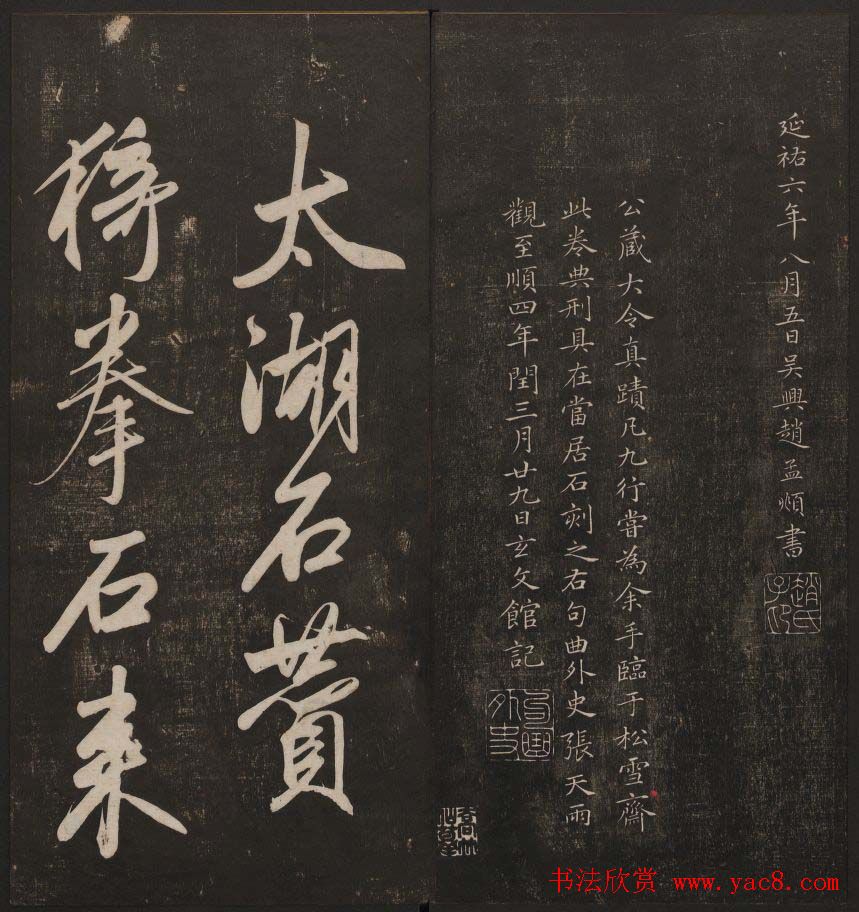 延祐六年八月五日吴興趙孟頫書
趙氏子昂
公蔵大令真蹟凡九行甞為余手臨于松雪齋
此卷典刑具在當居石刻之右句曲外史張天雨
觀至順四年閏三月廿九日玄文館記
句曲外史
太湖石賛
猗拳石来
书法欣赏 www.yac8.com